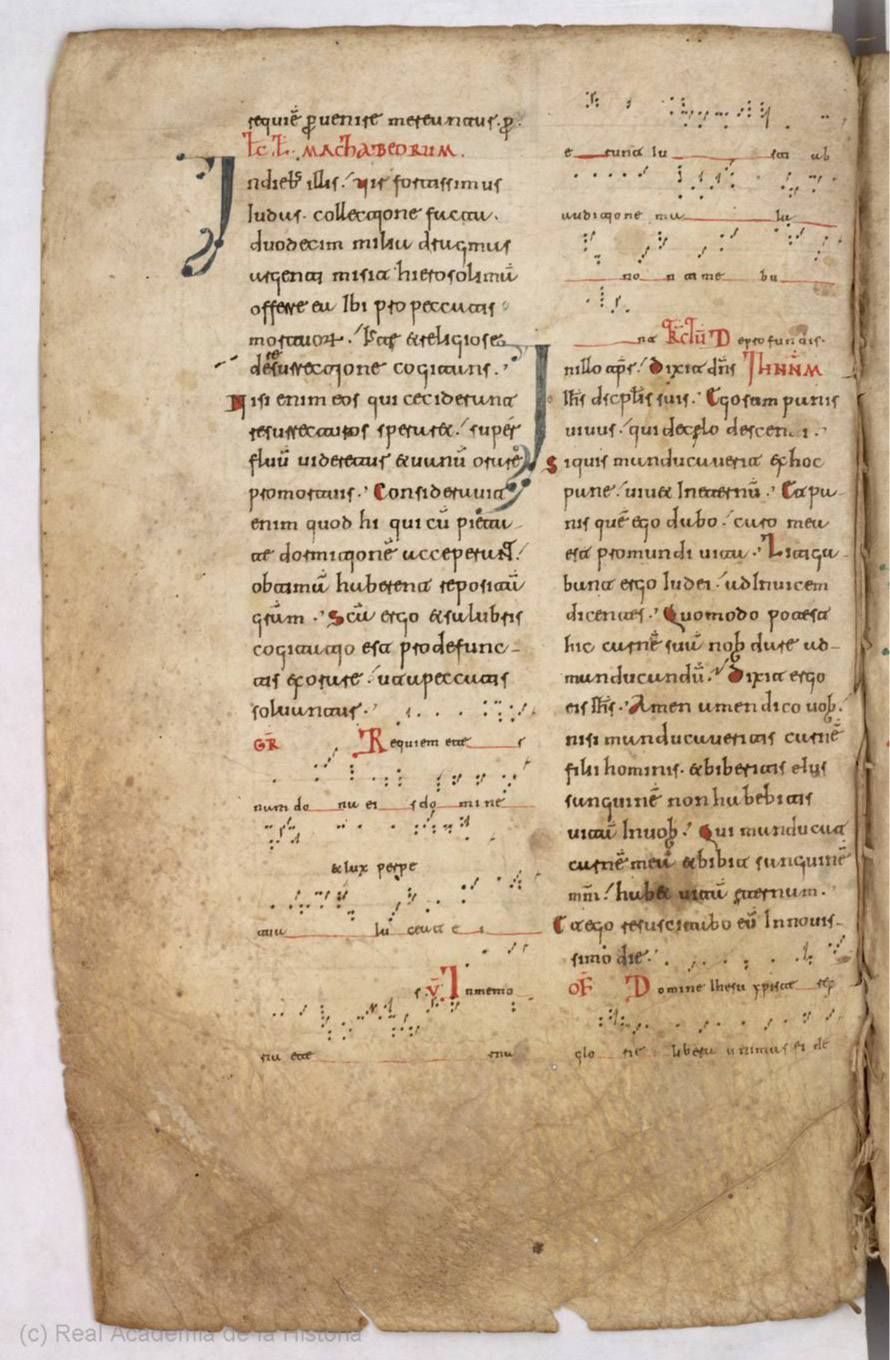 requiē ꝑuenire mereantur. ꝑ.
Lc̄ L̄. MACHABEORUM.
Indieb; illis. uir fortissimus
Iudas. collectione facta.
duodecim milia dragmas
argenti misit hierosolimā
offerre ea Ibi pro peccatis
mortuor. Iuste & religiose
deresurrectione cogitans.
Nisi enim eos qui ceciderunt
resurrecturos speraret. super
fluū uideretur & uanū orare
promortuis. Considerauit
enim quod hi qui cū pieta-
te dormitionē acceperant.
obtimā haberent repositā
gr̄am. Scā ergo & salubris
cogitatio est prodefunc-
tis exorare. ut a peccatis
soluantur.
GR̄ Requiem ete r
num do na ei s do mine
& lux perpe
tua lu ceat e i
s. V̄ Inmemo
ria ete rna
e runt lu ssti ab
auditione ma la
no n time bu
nt R̄ctū D eprofundis.
Inillo tp̄r. Dixit dn̄s IHNNM
Ih̄s discpl̄is suis. Ego sum panis
uiuus. qui decęlo descendi.
Siquis manducauerit ex hoc
pane. uiuet Ineternū. Et pa-
nis quē ego dabo. caro mea
est promundi uita. Litiga-
bant ergo Iudei. adInuicem
dicentes. Quomodo potest
hic carnē suā nob̄ dare ad-
manducandū. Dixit ergo
eis Ih̄s. Amen amen dico uob̄.
nisi manducaueritis carnē
filii hominis. & biberitis eius
sanguinē non habebitis
uitā Inuob̄. Qui manducat
carnē meā & bibit sanguinē
mm̄. habet uitā ęternam.
Et ego resuscitabo eū Innouis-
simo die.
OF̄ Domine Ihesu xpiste rex
glo rie libera animas ei de
(c) Real Academia de la Historia